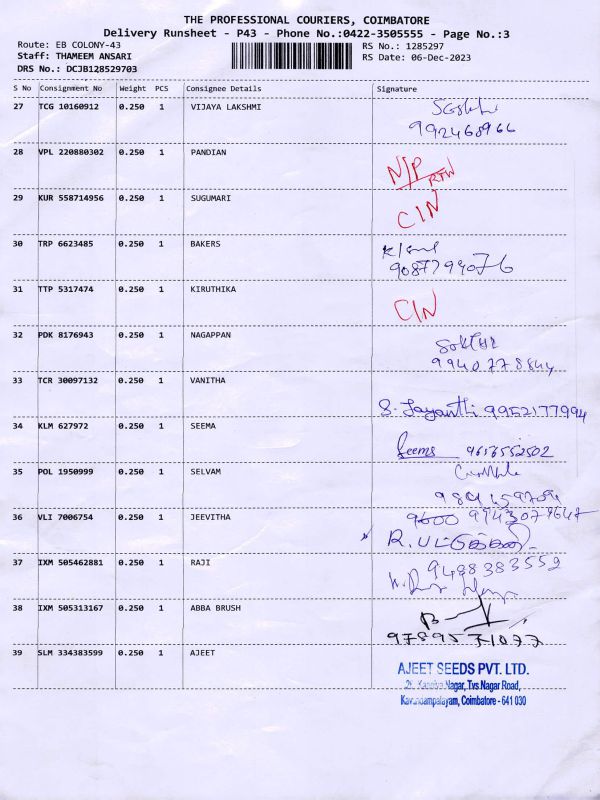 THE PROFESSIONAL COURIERS, COIMBATORE
Delivery Runsheet - P43 - Phone No.:0422-3505555 - Page No.:3
Route: EB COLONY-43 RS No.: 1285297
Staff: THAMEEM ANSARI RS Date: 06-Dec-2023
DRS No.: DCJB128529703
S No Consignment No Weight PCS Consignee Details Signature
27 TCG 10160912 0.250 1 VIJAYA LAKSHMI
28 VPL 220880302 0.250 1 PANDIAN N/P RTW
29 KUR 558714956 0.250 1 SUGUMARI C/N
30 TRP 6623485 0.250 1 BAKERS
9087794076
31 TTP 5317474 0.250 1 KIRUTHIKA C/N
32 PDK 8176943 0.250 1 NAGAPPAN
9940778844
33 TCR 30097132 0.250 1 VANITHA
S. Jayanthi 9952177994
34 KLM 627972 0.250 1 SEEMA
Seema 9656552502
35 POL 1950999 0.250 1 SELVAM
36 VLI 7006754 0.250 1 JEEVITHA 9600 9943079647
37 IXM 505462881 0.250 1 RAJI 9488383552
38 IXM 505313167 0.250 1 ABBA BRUSH
9789571077
39 SLM 334383599 0.250 1 AJEET
AJEET SEEDS PVT. LTD.
Nagar, Tvs Nagar Road,
Kavundampalayam, Coimbatore - 641 030